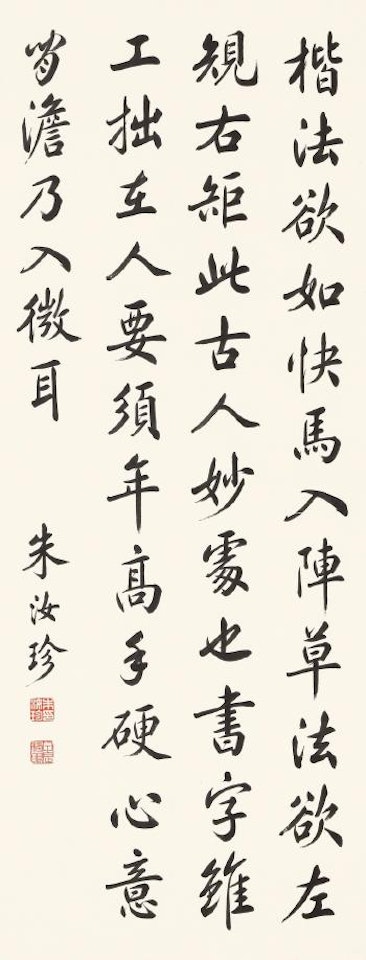 楷法欲如快馬入陣草法欲左
規右矩此古人妙處也書字雖
工拙在人要須年高手硬心意
閒澹乃入微耳
朱汝珍